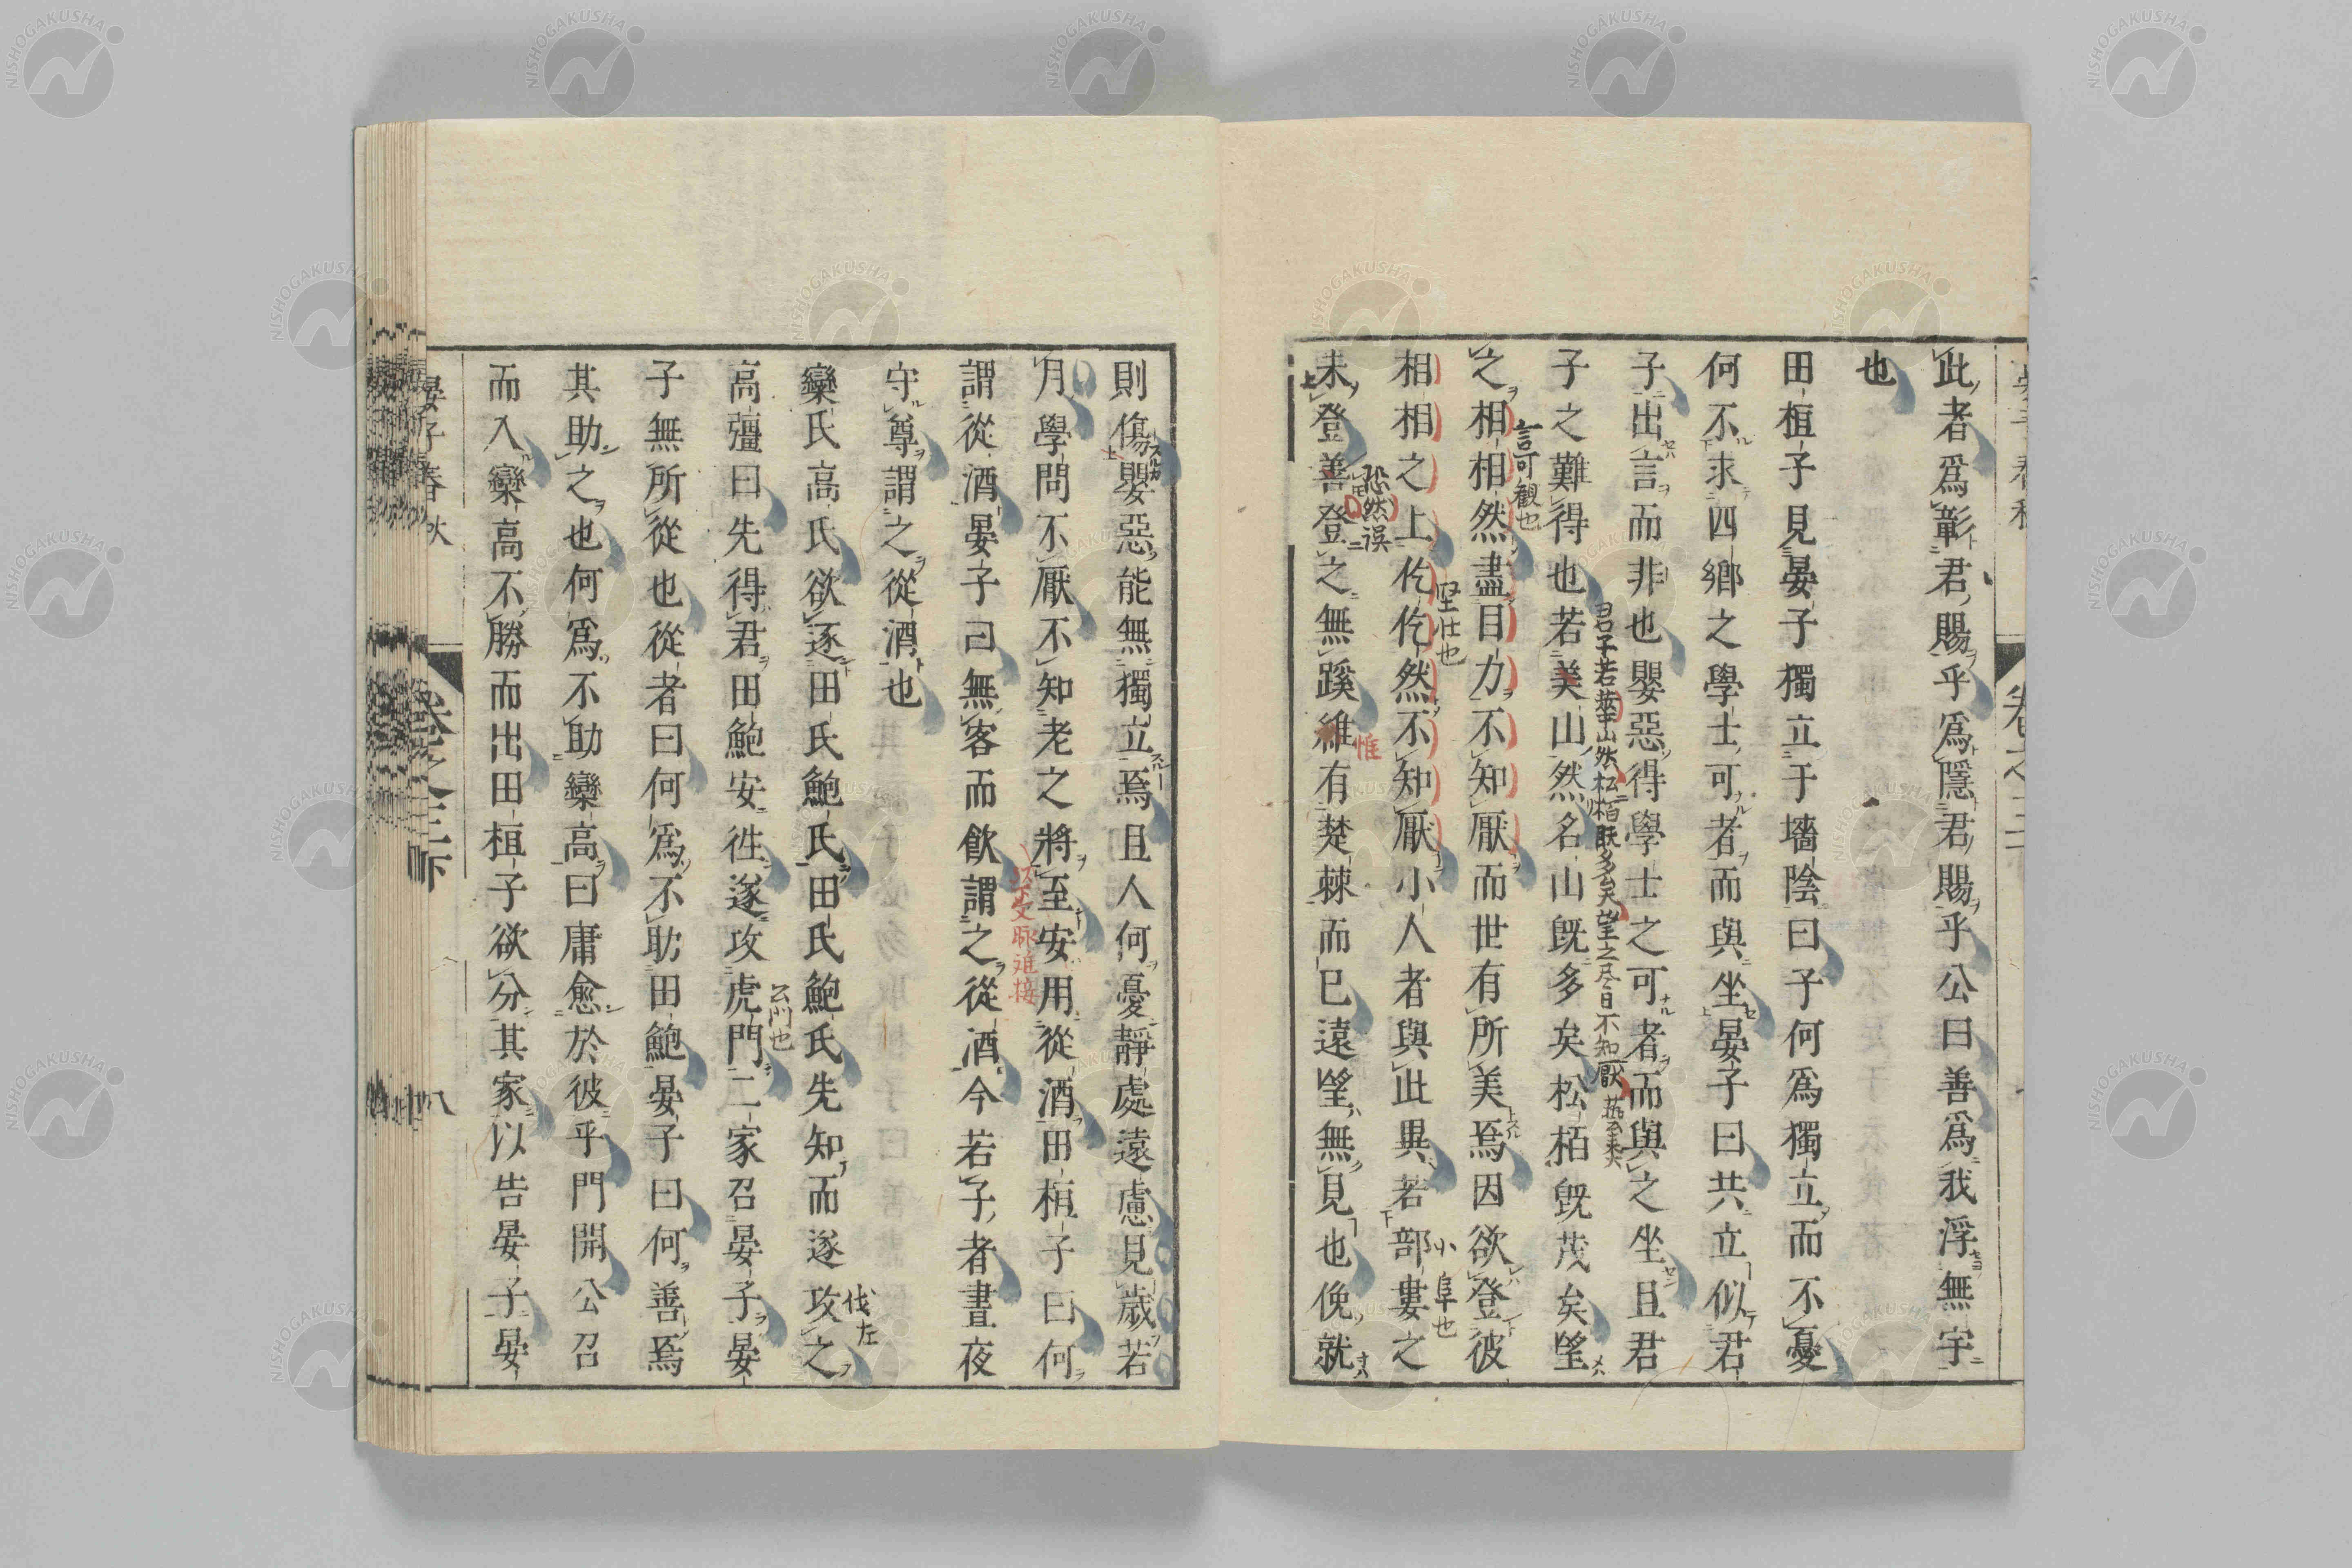 此者爲彰君賜乎爲隱君賜乎公曰善爲我浮無宇
也
田桓子見晏子獨立于墻陰曰子何爲獨立而不憂
何不求四鄉之學士可者而與坐晏子曰共立似君
子出言而非也嬰惡得學士之可者而與之坐且君
君子若華山然松栢既多矣望之尽日不知厭
子之難得也若美山然名山既多矣松栢既茂矣望
言可觀也
之相相然盡目力不知厭而世有所美焉因欲登彼
堅壮也
小阜也
相相之上仡仡然不知厭小人者與此異若部婁之
恐然誤
惟
未登善登之無蹊維有楚棘而已遠望無見也俛就
則傷嬰惡能無獨立焉且人何憂靜處遠慮見歲若
月學問不厭不知老之將至安用從酒田桓子曰何
以下文脈難接
謂從酒晏子曰無客而飲謂之從酒今若子者晝夜
守尊謂之從酒也
欒氏高氏欲逐田氏鮑氏田氏鮑氏先知而遂攻之
伐左
公門也
高彊曰先得君田鮑安往遂攻虎門二家召晏子晏
子無所從也從者曰何爲不助田鮑晏子曰何善焉
其助之也何爲不助欒高曰庸愈於彼乎門開公召
而入欒高不勝而出田桓子欲分其家以告晏子晏
晏子春秋 卷之三下 八
NISHOGAKUSHA